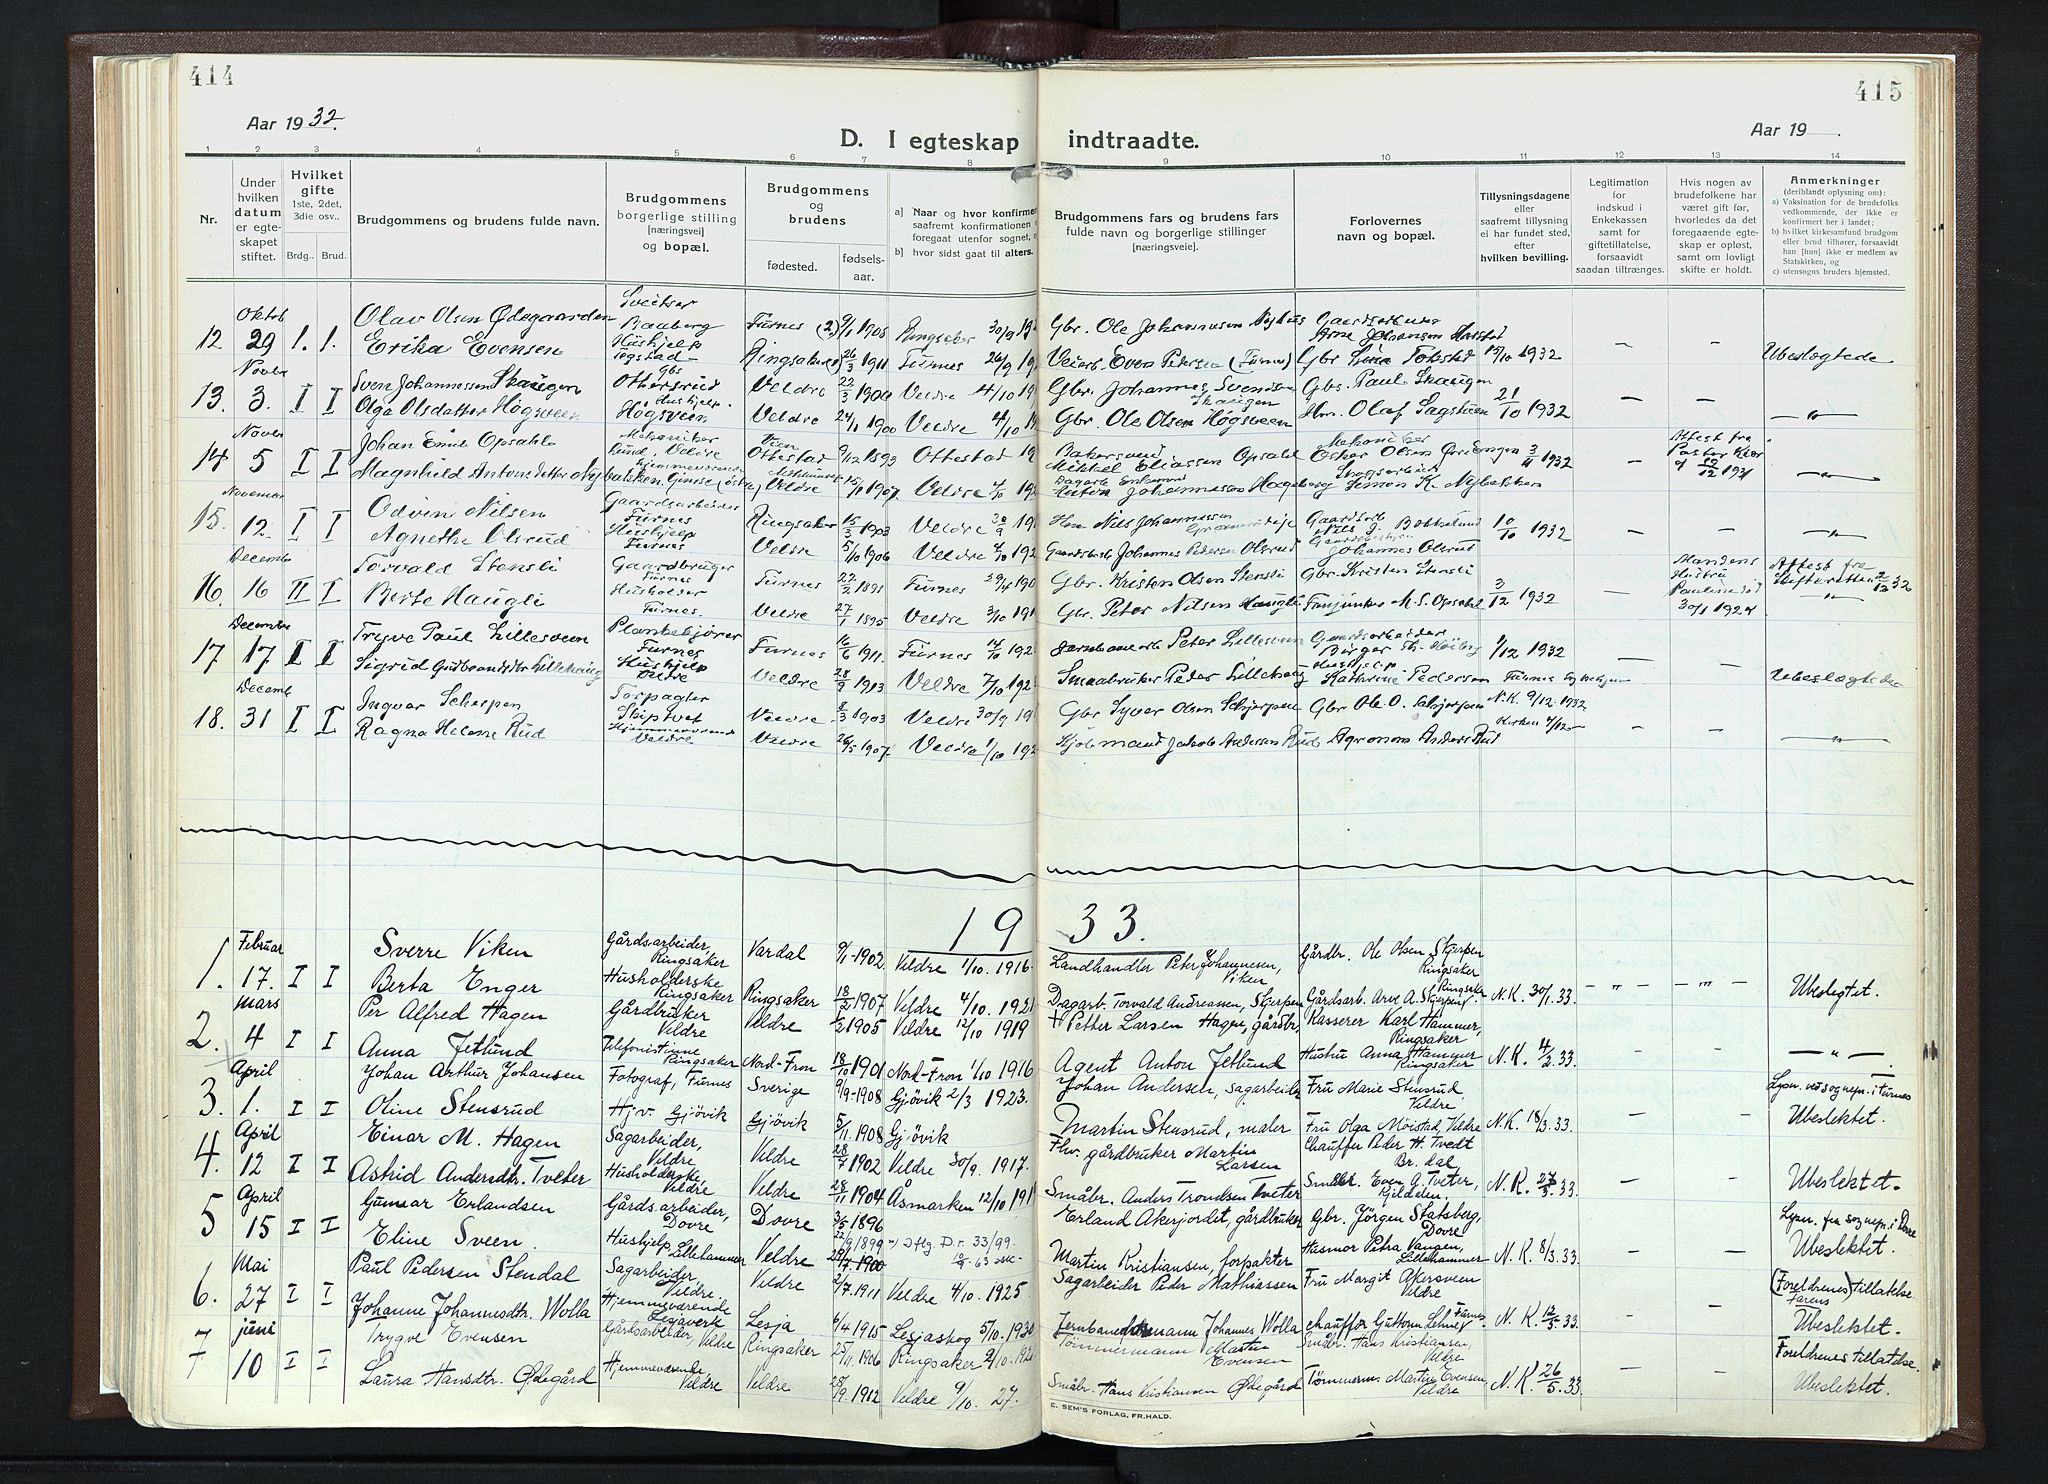 414
415
Aar 1932.
Aar 19
D. I egteskap indtraadte.
1 2 3 4 5 6 7 8 9 10 11 12 13 14
Nr.
Under hvilken datum er egteskapet stiftet.
Hvilket gifte 1ste, 2det, 3die osv..
Brdg.. Brud.
Brudgommens og brudens fulde navn.
Brudgommens borgerlige stilling [næringsvei] og bopæl.
Brudgommens og brudens
fødested.
fødsels-aar.
a] Naar og hvor konfirmer
saafremt konfirmationen
foregaat utenfor sognet,
b] hvor sidst gaat til alters.
Brudgommens fars og brudens fars fulde navn og borgerlige stillinger [næringsveie].
Forlovernes navn og bopæl.
Tillysningsdagene eller saafremt tillysning ei har fundet sted, efter hvilken bevilling.
Legitimation for indskud i Enkekassen samt for giftetillatelse, forsaavidt saadan tiltrænges.
Hvis nogen av brudefolkene har været gift før, hvorledes da det foregaaende egteskap er opløst, samt om lovligt skifte er holdt.
Anmerkninger
(deriblandt oplysning om):
a) Vaksination for de brudefolks vedkommende, der ikke er konfirmert her i landet;
b) hvilket kirkesamfund brudgom eller brud tilhører, forsaavidt han [hun] ikke er medlem av Statskirken, og
c) utensogns bruders hjemsted.
12 Oktob 29 1. 1. Olav Olsen Ødegaarden Sveitser Baaberg Furnes 9/1 1908 Ringsaker 30/9 Gbr. Ole Johannesen Gaardsarbeider Arne Johansen
Erika Evensen Hushjelp Ringsaker 26/3 1911 Furnes 26/9 Veiarb. Even Petersen (Furnes) Gbr 15/10 1932 — — Ubeslægtede
13. Novbr 3. I I Sven Johannessen Skaugen gbs Veldre 22/3 1900 Veldre 4/10 Gbr. Johannes Svendsen Skaugen Gbs. Paul Skaugen
Olga Olsdatter Høgsveen Hushjelp. Høgsveen Veldre 24/1 1900 Veldre 4/10 Gbr. Ole Olsen Høgsveen Hm. Olaf Sagstuen 21/10 1932 — — —"—
14 Novbr 5 I I Johan Emil Opsahl Mekaniker Lund, Veldre Ottestad 9/12 1893 Ottestad Mikkel Eliassen Opsahl Mekaniker Oskar Olsen 3/11 1932 — Attest fra Pastor Kier
Magnhild Antonsdatter Nybakken hjemmeværende Veldre 15/11 1907. Veldre 4/10 Anton Johannessen Skogsarbeider Simon K. Nybakken —"—
15. November 12. I I Odvin Nilsen Gaardsarbeider Furnes Ringsaker 15/3 1903 Veldre 30/9 Hm Nils Johannessen Gaardsarb. Nils J.
Agnethe Olsrud Hushjelp Furnes Veldre 5/10 1906 Veldre 4/10 Gaardsarb. Johannes Pedersen Olsrud Johannes Olsrud 10/10 1932 — — —"—
16. Decembr 16 II I Torvald Stensli Gaardbruger Furnes Furnes 22/2 1891 Furnes Gbr. Kristen Olsen Stensli Gbr. Kristen Stensli 3/12 1932 — Mandens Hustru Pauline død 30/1 1924 Attest fra Skifteretten 2/12 32
Berte Haugli Husholder Furnes. Veldre 27/1 1895 Veldre 3/10 Gbr. Peter Nilsen Haugli Fanjunker M. S. Opsahl —"—
17 Decembr 17 I I Trygve Paul Lillesveen Plankekjører Furnes Furnes 16/6 1911. Furnes 14/10 Jernbanearb Peter Lillesveen Gaardsarbeider Birger 1/12 1932
Sigrid Gudbrandsdtr Lillehaug Hushjelp Veldre Veldre 28/9 1913 Veldre 7/10 Smaabruker Peder Lillehaug Hushjelp Kathrine Pedersen — — Ubeslægtede
18. Decemb 31 I I Ingvar Scherpen Forpagter Skiptvet Veldre 8/3 1903 Veldre 30/9 Gbr Syver Olsen Schjerpen Gbr Ole O. Schjerpen N.K. 9/12. 1932
Ragna Helene Rud Hjemmeværende Veldre Veldre 26/5 1907. Veldre 1/10 Kjøbmand Jakob Andersen Rud Agronom Anders Rud — — —"—
1933.
1. Februar 17. I I Sverre Viken Gårdsarbeider, Ringsaker Vardal 9/1-1902. Veldre 1/10. 1916 Landhandler Peter Johannesen, Viken Gårdbr. Ole Olsen Skjerpen Ringsaker
Berta Enger Husholderske Ringsaker Ringsaker 18/2 1907 Veldre 4/10. 1921 Dagarb. Torvald Andreassen, Skjerpen Gårdsarb. Arve A. Skjerpen, Ringsaker N.K. 30/1. 33. -"- -"'- Ubeslegtet.
2. Mars 4 I I Per Alfred Hagen Gårdbruker Veldre Veldre 1905 Veldre 12/10 1919 + Petter Larsen Hagen, gårdbr. Kasserer Karl Hammer, Ringsaker
Anna Jetlund Telefonistinne Ringsaker Nord-Fron 18/10 1901 Nord-Fron 1/10 1916 Agent Anton Jetlund Hustru Anna Hammer Ringsaker N.K. 4/2. 33. —"—.
3. April 1. I I Johan Arthur Johansen Fotograf, Furnes Sverige 9/9-1908 Gjøvik 2/3 1923. Johan Andersen, sagarbeider Fru Marie Stensrud, Veldre Lysn. ved sognepr. i Furnes
Oline Stensrud Hjv. Gjøvik Gjøvik 5/11 1908 Gjøvik Martin Stensrud, maler Fru Olga Moistad, Veldre N.K. 18/3. 33. - - Ubeslektet.
4. April 12 I I Einar M. Hagen Sagarbeider, Veldre Veldre 28/7 1902 Veldre 30/9. 1917. Fhv. gårdbruker Martin Larsen Chauffør Peder H. Tvedt Br. dal
Astrid Andersdtr. Tveter Husholderske, Veldre Veldre 28/11 1904 Åsmarken 12/10 191 Småbr. Anders Trondsen Tveter Småbr. Even A. Tveter, N.K. 27/3. 33. - - Ubeslektet.
5 April 15 I I Gunnar Erlandsen Gårdsarbeider, Dovre Dovre 3/5 1896 Erland Akerjordet, gårdbruker Gbr. Jörgen Statsberg, Dovre Lysn. fra sognepr. i Dovre
Eline Sveen. Hushjelp, Lillehammer Veldre 22/9 1899 Dftg. D.r. 33/99. Martin Kristiansen, forpakter Husmor Petra Vangen, Lillehammer N.K. 8/3. 33. - - Ubeslektet.
6. Mai 27 I I Paul Pedersen Stendal Sagarbeider, Veldre Veldre 2/7 1911 Veldre 4/10. 1925. Sagarbeider Peder Mathiassen Fru Margit Akersveen Veldre (Foreldrenes) tillatelse. Farens
Johanne Johannesdtr. Wolla Hjemmeværende Lesjaverk Lesja 6/4 1915 Lesjaskog 5/10. 1930 Jernbaneformann Johannes Wolla chauffør Guttorm Furnes N.K. 12/5. 33. - - Ubeslektet.
7 Juni 10 I I Trygve Evensen Gårdsarbeider, Veldre Ringsaker 25/11 1906 Ringsaker 2/10. Tömmermann Martin Evensen Småbr. Hans Kristiansen, Veldre Foreldrenes tillatelse.
Laura Hansdtr. Ødegård Hjemmeværende Veldre Veldre 28/9 1912 Veldre 9/10. 27. Småbr. Hans Kristiansen Ødegård Tömmerm. Martin Evensen, Veldre N.K. 26/5. 33. - Ubeslektet.
E. SEM'S FORLAG, FR.HALD.